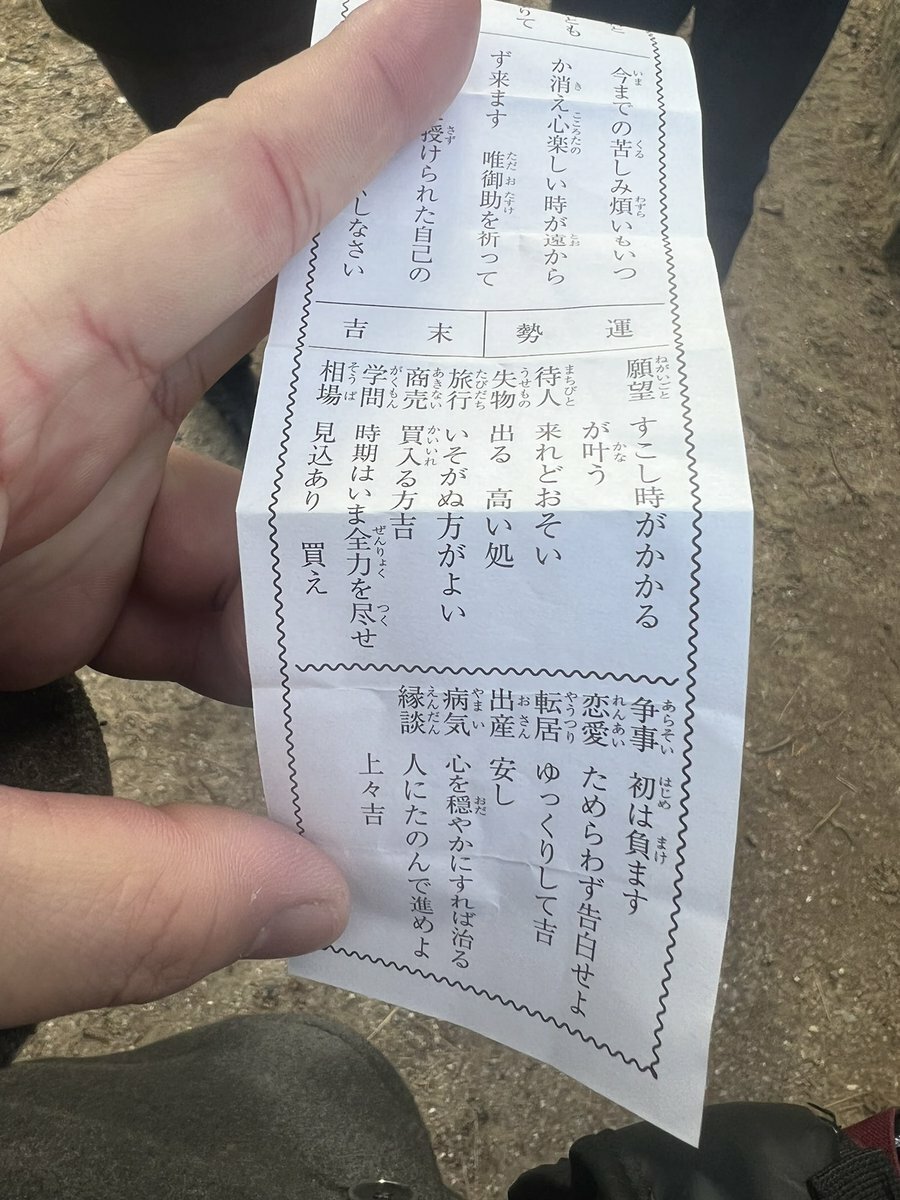 今までの苦しみ煩いもいつ
か消え心楽しい時が遠から
ず来ます 唯御助を祈って
授けられた自己の
しなさい
運勢 末吉
願望 すこし時がかかる
が叶う
待人 来れどおそい
失物 出る 高い処
旅行 いそがぬ方がよい
商売 買入る方吉
学問 時期はいま全力を尽せ
相場 見込あり 買え
争事 初は負ます
恋愛 ためらわず告白せよ
転居 ゆっくりして吉
出産 安し
病気 心を穏やかにすれば治る
縁談 人にたのんで進めよ
上々吉